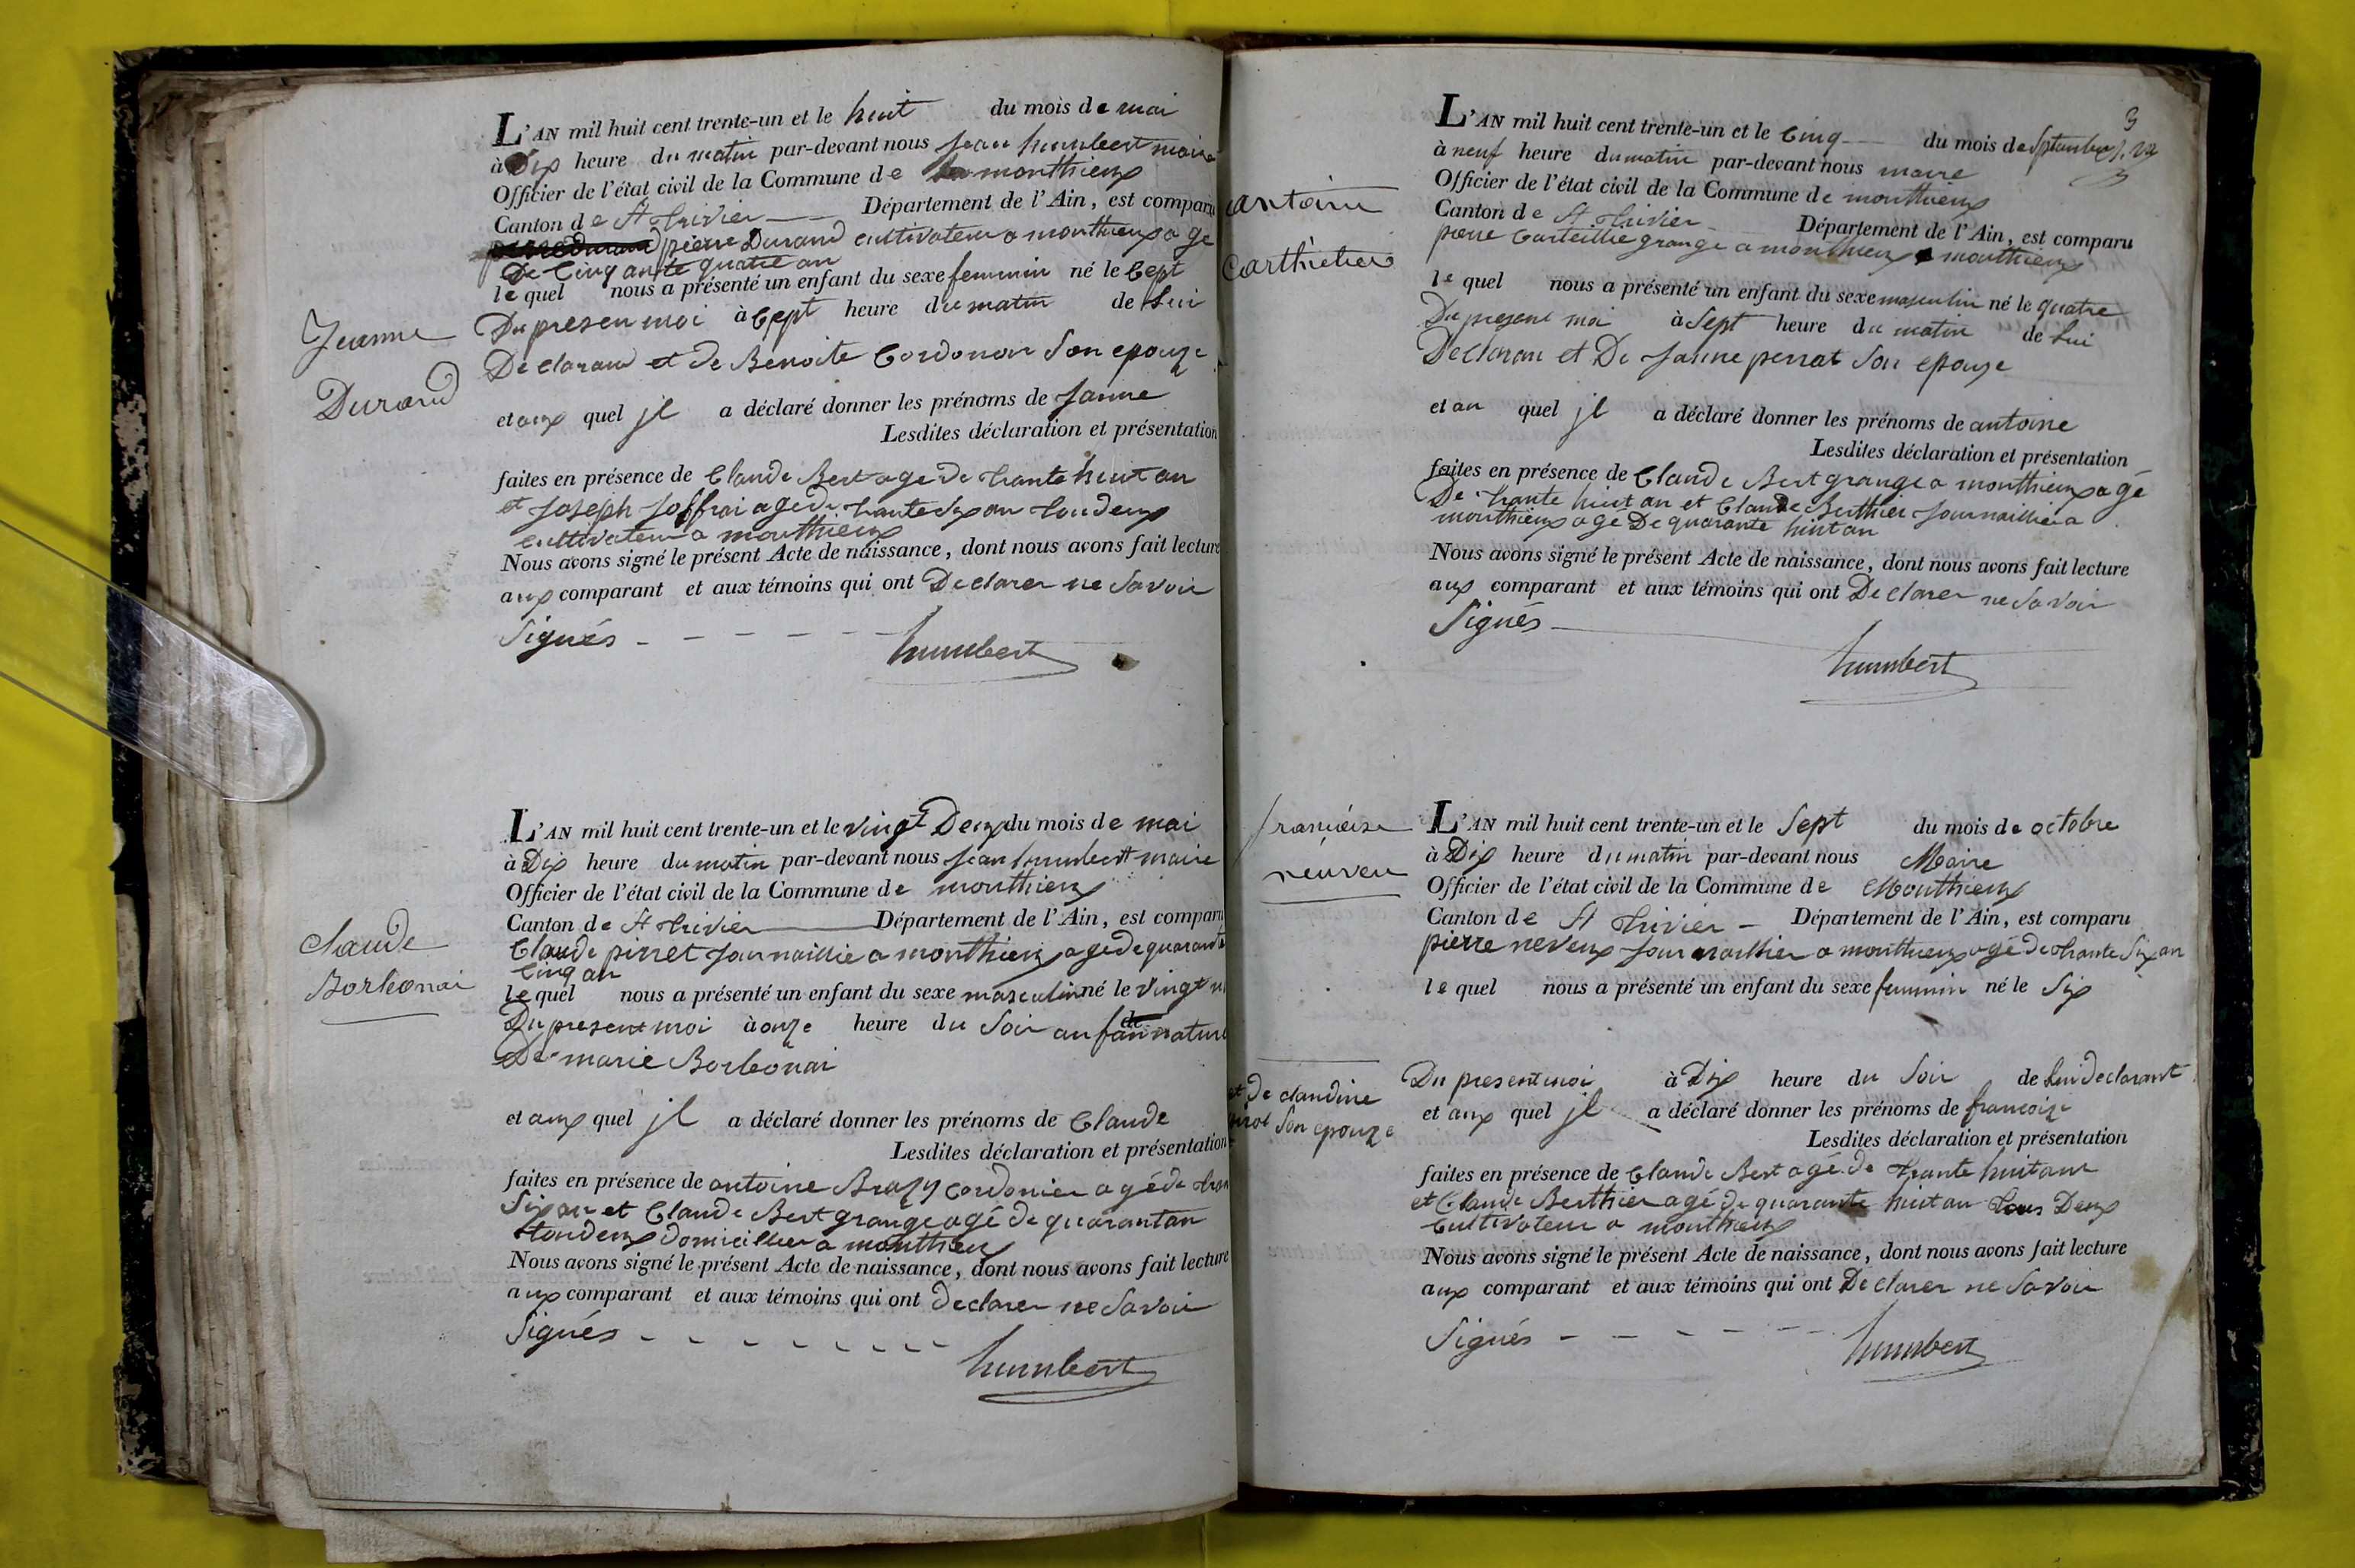 L'AN mil huit cent trente-un et le huit du mois de mai
à Dix heure du matin par-devant nous jean humbert maire
Officier de l'état civil de la Commune de monthieux
Canton de St trivier Département de l'Ain, est comparu
pierre Durand cultivateur a monthieux age
De Cinquante quatre an
le quel nous a présenté un enfant du sexe feminin né le Cept
Du presen moi à Cept heure du matin de Lui
Declarand et de Benoite Cordonon Son epouze
et aux quel jl a déclaré donner les prénoms de janne
Lesdites déclaration et présentation
faites en présence de Claude Bert age de trante huit an
et joseph joffrai age de trante Six an tou deux
cultivateur a monthieux
Nous avons signé le présent Acte de naissance, dont nous avons fait lecture
aux comparant et aux témoins qui ont Declarer ne Savoir
Signés
humbert
Jeanne
Durand
L'AN mil huit cent trente-un et le vingt Deux du mois de mai
à Dix heure du matin par-devant nous jean humbert maire
Officier de l'état civil de la Commune de monthieux
Canton de St trivier Département de l'Ain, est comparu
Claude pirret journaillie a monthieux age de quarante
Cinq an
le quel nous a présenté un enfant du sexe masculin né le vingt
Du present moi à onze heure du Soir
De marie Borbonai
et aux quel jl a déclaré donner les prénoms de Claude
Lesdites déclaration et présentation
faites en présence de antoine Brazy cordonier agé de
Six an et Claude Bert grange agé de quarantan
toudeux domicillier a monthieux
Nous avons signé le présent Acte de naissance, dont nous avons fait lecture
aux comparant et aux témoins qui ont declarer ne Savoir
Signés
humbert
Claude
Borbonai
3
L'AN mil huit cent trente-un et le Cinq du mois de Septembre
à neuf heure du matin par-devant nous maire
Officier de l'état civil de la Commune de monthieux
Canton de St trivier Département de l'Ain, est comparu
pierre Carteillie grange a monthieux a monthieux
le quel nous a présenté un enfant du sexe masculin né le quatre
Du present moi à Sept heure du matin de Lui
Declaran et De janne perrat Son epouze
et au quel jl a déclaré donner les prénoms de antoine
Lesdites déclaration et présentation
faites en présence de Claude Bert grange a monthieux agé
De trante huit an et Claude Berthier journaillier a
monthieux age De quarante huit an
Nous avons signé le présent Acte de naissance, dont nous avons fait lecture
aux comparant et aux témoins qui ont Declarer ne Savoir
Signés
humbert
antoine
Carthelier
L'AN mil huit cent trente-un et le Sept du mois de octobre
à Dix heure du matin par-devant nous Maire
Officier de l'état civil de la Commune de Monthieux
Canton de St trivier Département de l'Ain, est comparu
pierre neveux journaillier a monthieux agé de trante Six an
le quel nous a présenté un enfant du sexe feminin né le Six
Du present moi à Dix heure du Soir de Lui declarant
et aux quel jl a déclaré donner les prénoms de francoize
Lesdites déclaration et présentation
faites en présence de Claude Bert agé de trante huitans
et Claude Berthier agé de quarante huit an tous Deux
Cultivateur a monthieux
Nous avons signé le présent Acte de naissance, dont nous avons fait lecture
aux comparant et aux témoins qui ont Declarer ne Savoir
Signés
humbert
françoise
néuveu
et De claudine
Son epouze